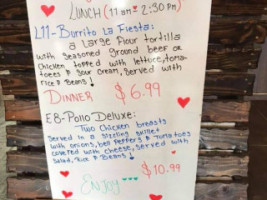 LUNCH (11 am - 2:30 pm)
L11-Burrito La Fiesta:
a large flour tortilla
with seasoned ground beef or
chicken topped with lettuce, toma-
toes & sour cream, served with
rice & beans!
DINNER $6.99
E8-Pollo Deluxe:
Two chicken breasts
served in a sizzling skillet
with onions, bell peppers & tomatoes
covered with cheese, served with
salad, rice & Beans!
$10.99
Enjoy